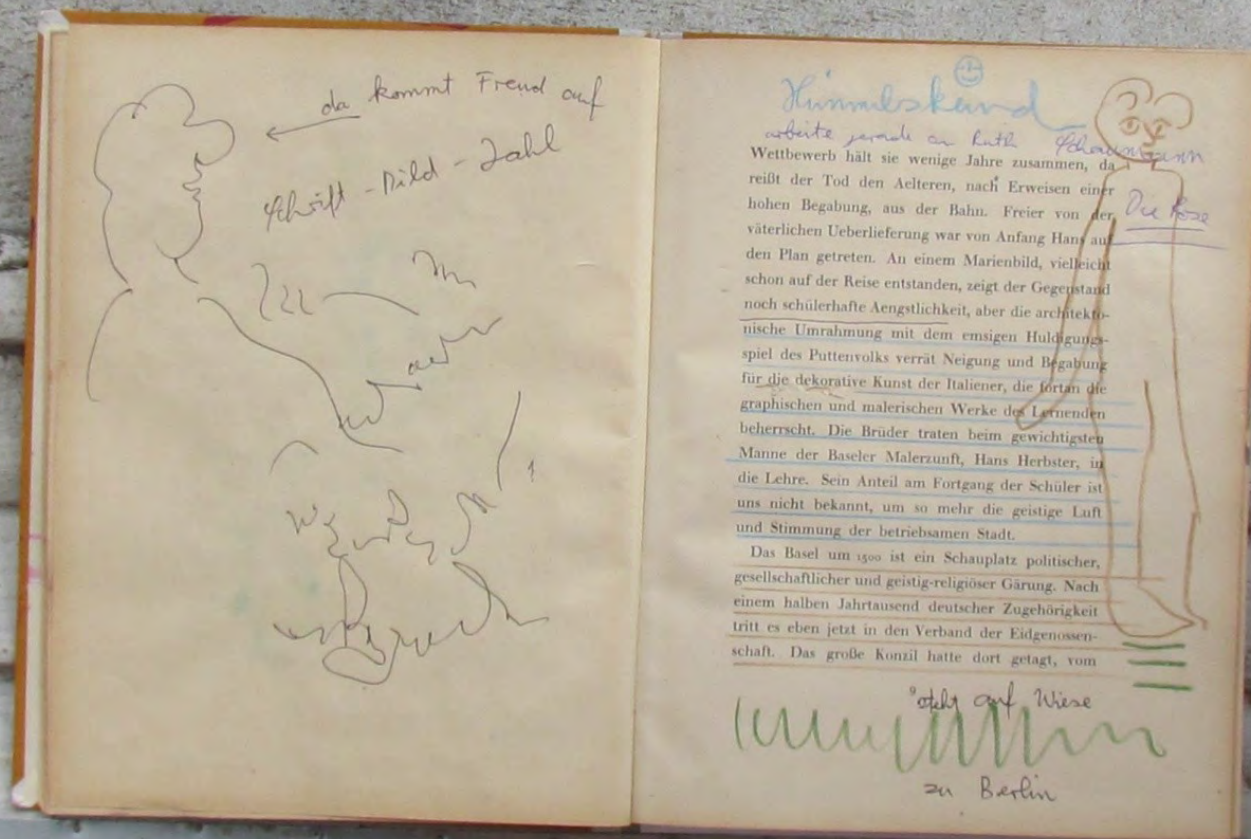 da kommt Freud auf
Schrift-Bild-Zahl
Himmelskind
arbeite gerade an Ruth Schaumann
Die Rose
Wettbewerb hält sie wenige Jahre zusammen, da
reißt der Tod den Aelteren, nach Erweisen einer
hohen Begabung, aus der Bahn. Freier von der
väterlichen Ueberlieferung war von Anfang Hans auf
den Plan getreten. An einem Marienbild, vielleicht
schon auf der Reise entstanden, zeigt der Gegenstand
noch schülerhafte Aengstlichkeit, aber die architekto-
nische Umrahmung mit dem emsigen Huldigungs-
spiel des Puttenvolks verrät Neigung und Begabung
für die dekorative Kunst der Italiener, die fortan die
graphischen und malerischen Werke des Lernenden
beherrscht. Die Brüder traten beim gewichtigsten
Manne der Baseler Malerzunft, Hans Herbster, in
die Lehre. Sein Anteil am Fortgang der Schüler ist
uns nicht bekannt, um so mehr die geistige Luft
und Stimmung der betriebsamen Stadt.
Das Basel um 1500 ist ein Schauplatz politischer,
gesellschaftlicher und geistig-religiöser Gärung. Nach
einem halben Jahrtausend deutscher Zugehörigkeit
tritt es eben jetzt in den Verband der Eidgenossen-
schaft. Das große Konzil hatte dort getagt, vom
steht auf Wiese
zu Berlin